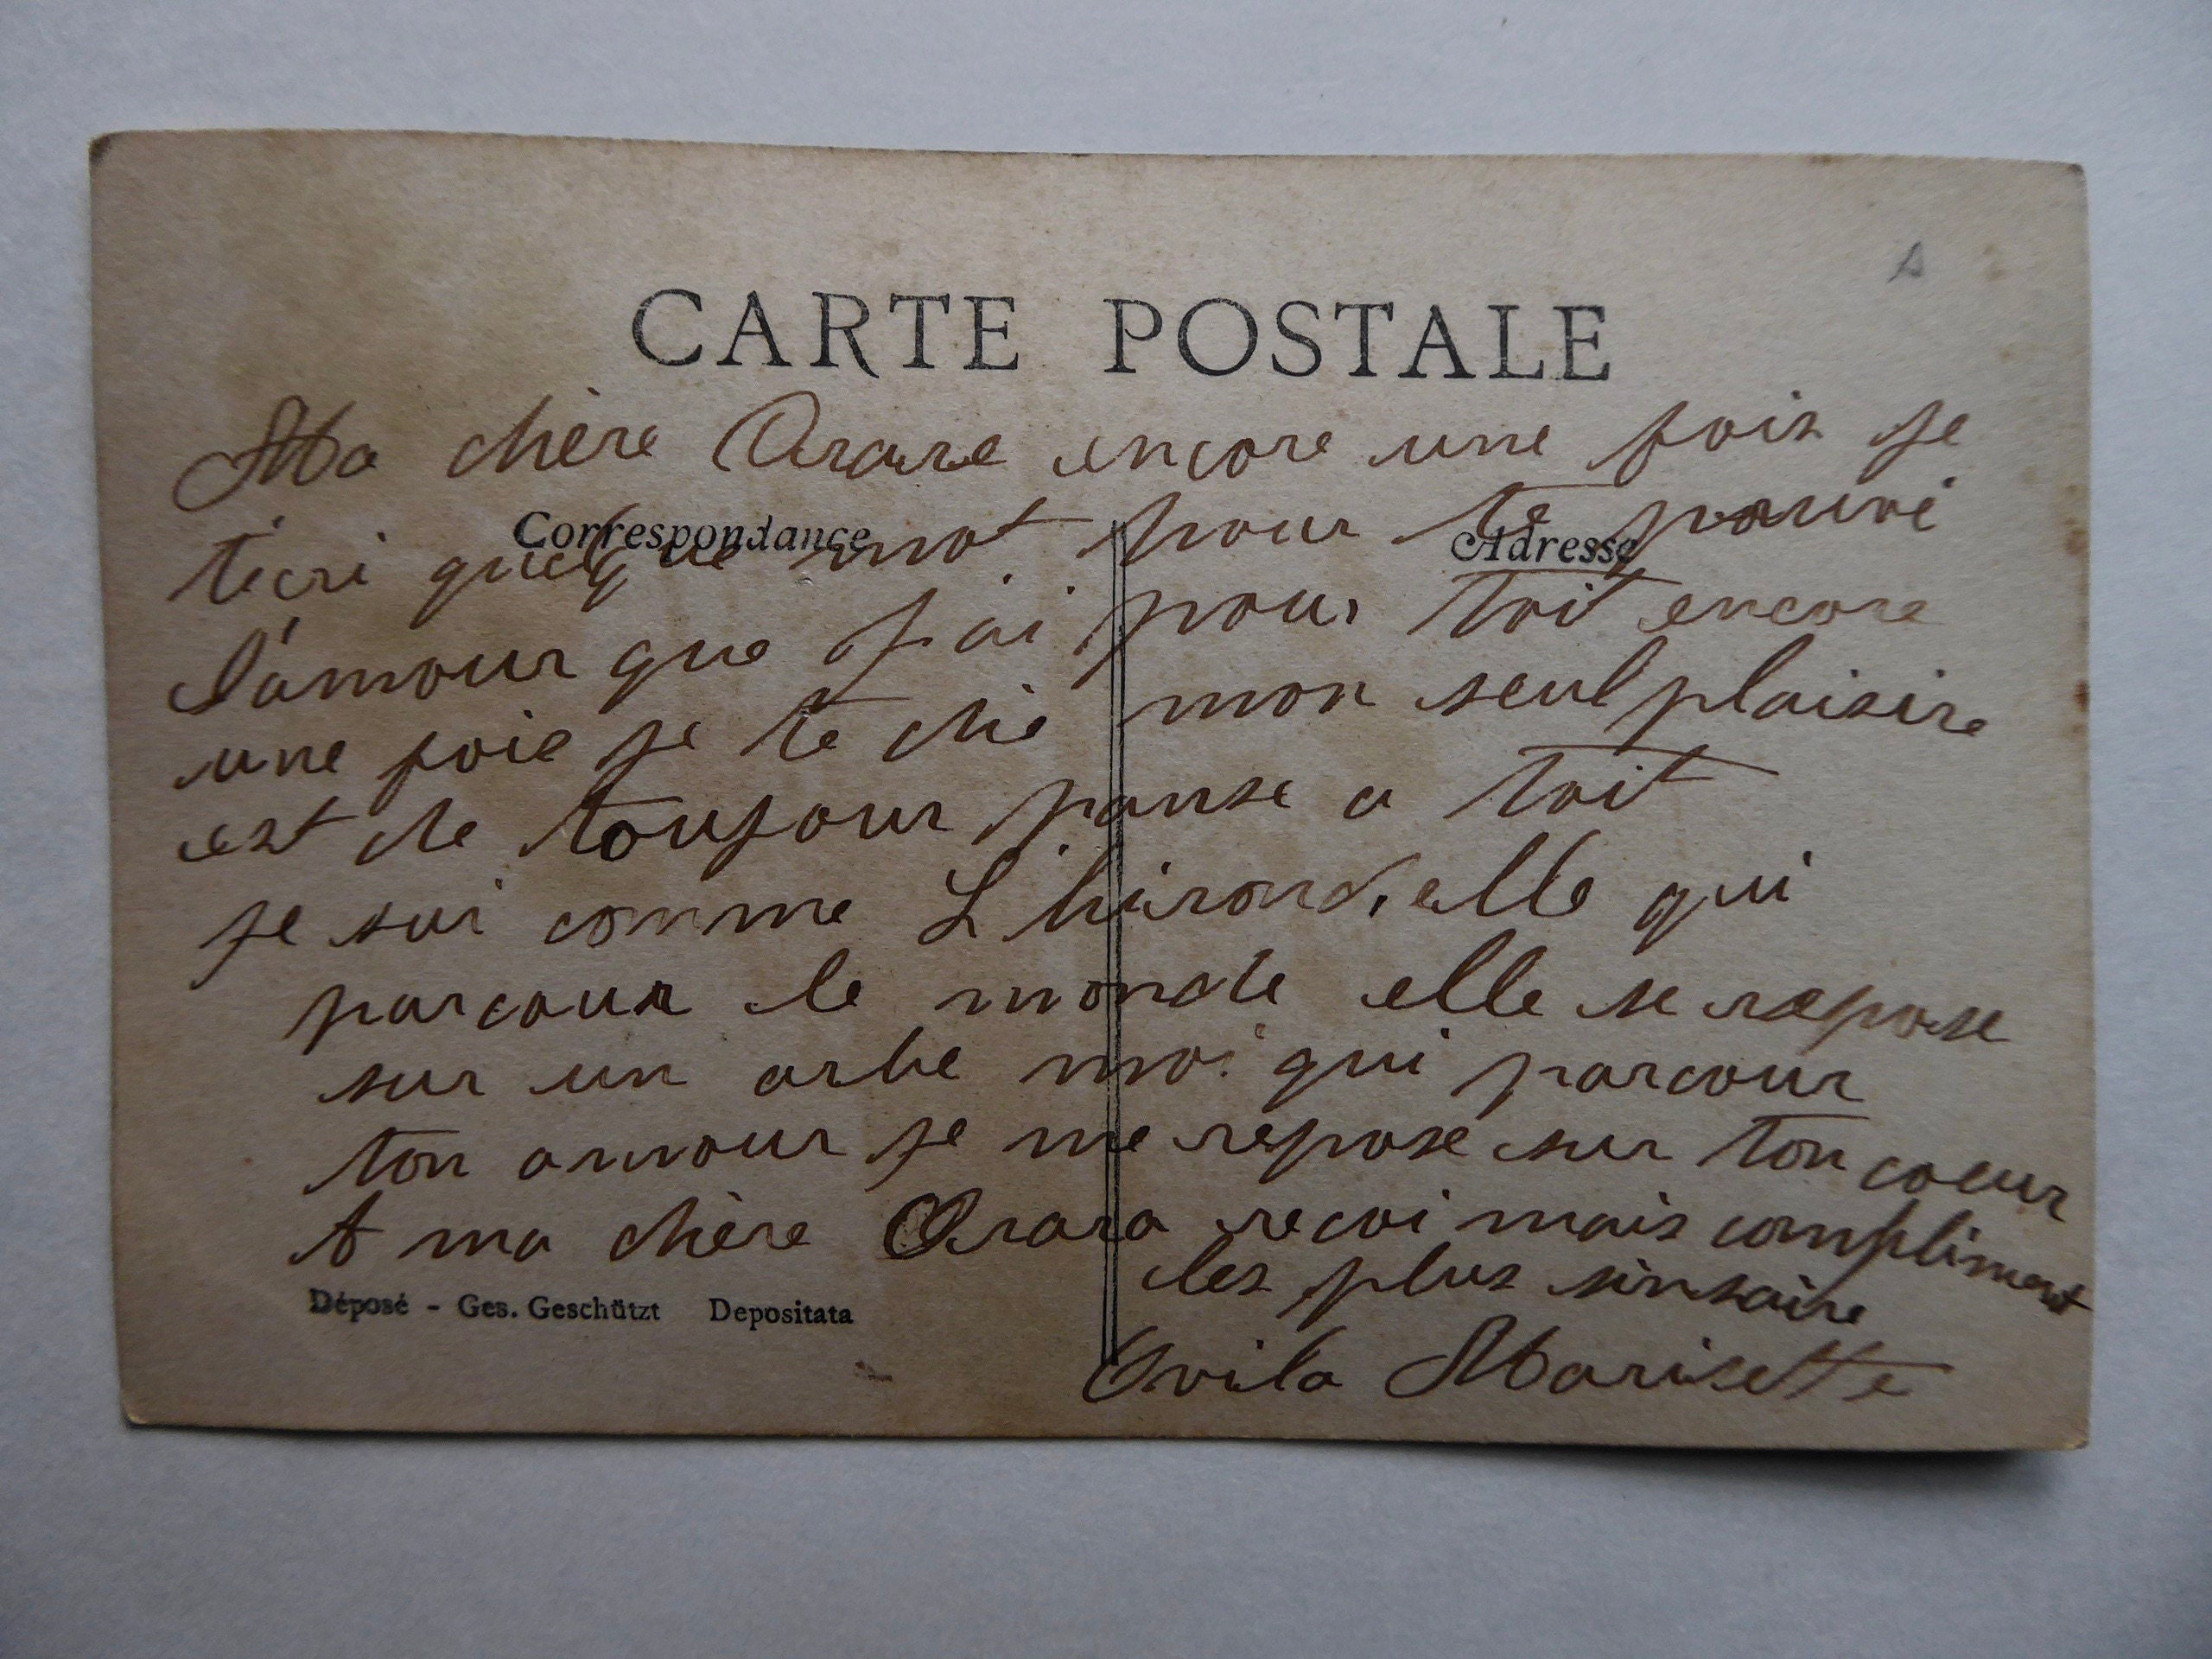 CARTE POSTALE
Ma chère Orare encore une fois je
Correspondance
Adresse
técri quelque mot pour te prouvé
l'amour que j'ai pour toit encore
une foie je te die mon seul plaisire
est de toujour panse a toit
je sui comme L'hirondielle qui
parcour le monde elle se repose
sur un arbe moi qui parcour
ton amour je me repose sur ton coeur
A ma chère Orara recoi mais compliment
les plus sinsaire
Déposé - Ges. Geschützt Depositata
Ovila Marisette